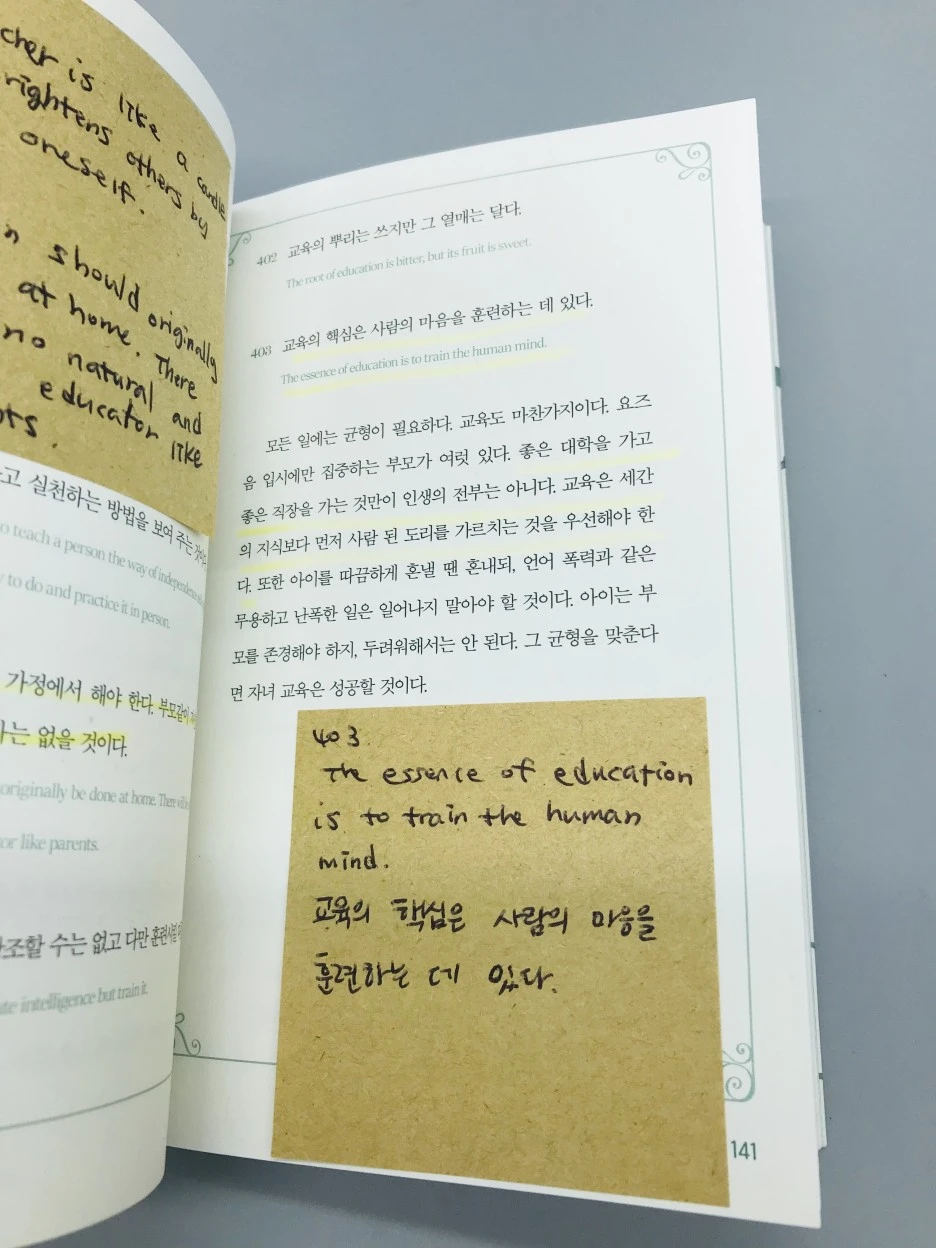 cher is like a candle
rightens others by
oneself.
n should originally
at home. There
no natural and
educator like
고 실천하는 방법을 보여 주는
to teach a person the way of independence
to do and practice it in person.
가정에서 해야 한다. 부모같이
는 없을 것이다.
originally be done at home. There will
or like parents.
조할 수는 없고 다만 훈련시킬
intelligence but train it.
402 교육의 뿌리는 쓰지만 그 열매는 달다.
The root of education is bitter, but its fruit is sweet.
403 교육의 핵심은 사람의 마음을 훈련하는 데 있다.
The essence of education is to train the human mind.
모든 일에는 균형이 필요하다. 교육도 마찬가지이다. 요즈
음 입시에만 집중하는 부모가 여럿 있다. 좋은 대학을 가고
좋은 직장을 가는 것만이 인생의 전부는 아니다. 교육은 세간
의 지식보다 먼저 사람 된 도리를 가르치는 것을 우선해야 한
다. 또한 아이를 따끔하게 혼낼 땐 혼내되, 언어 폭력과 같은
무용하고 난폭한 일은 일어나지 말아야 할 것이다. 아이는 부
모를 존경해야 하지, 두려워해서는 안 된다. 그 균형을 맞춘다
면 자녀 교육은 성공할 것이다.
403
The essence of education
is to train the human
mind.
교육의 핵심은 사람의 마음을
훈련하는 데 있다.
141